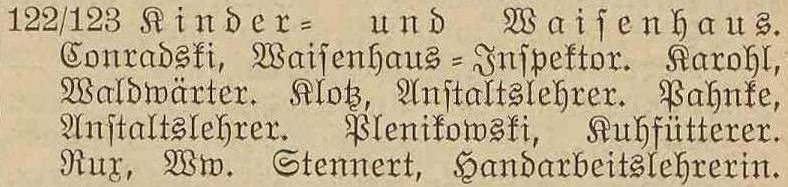 122/123 Kinder= und Waiſenhaus.
Conradski, Waiſenhaus=Inſpektor. Karohl,
Waldwärter. Klotz, Anſtaltslehrer. Pahnke,
Anſtaltslehrer. Plenikowski, Kuhfütterer.
Rux, Ww. Stennert, Handarbeitslehrerin.